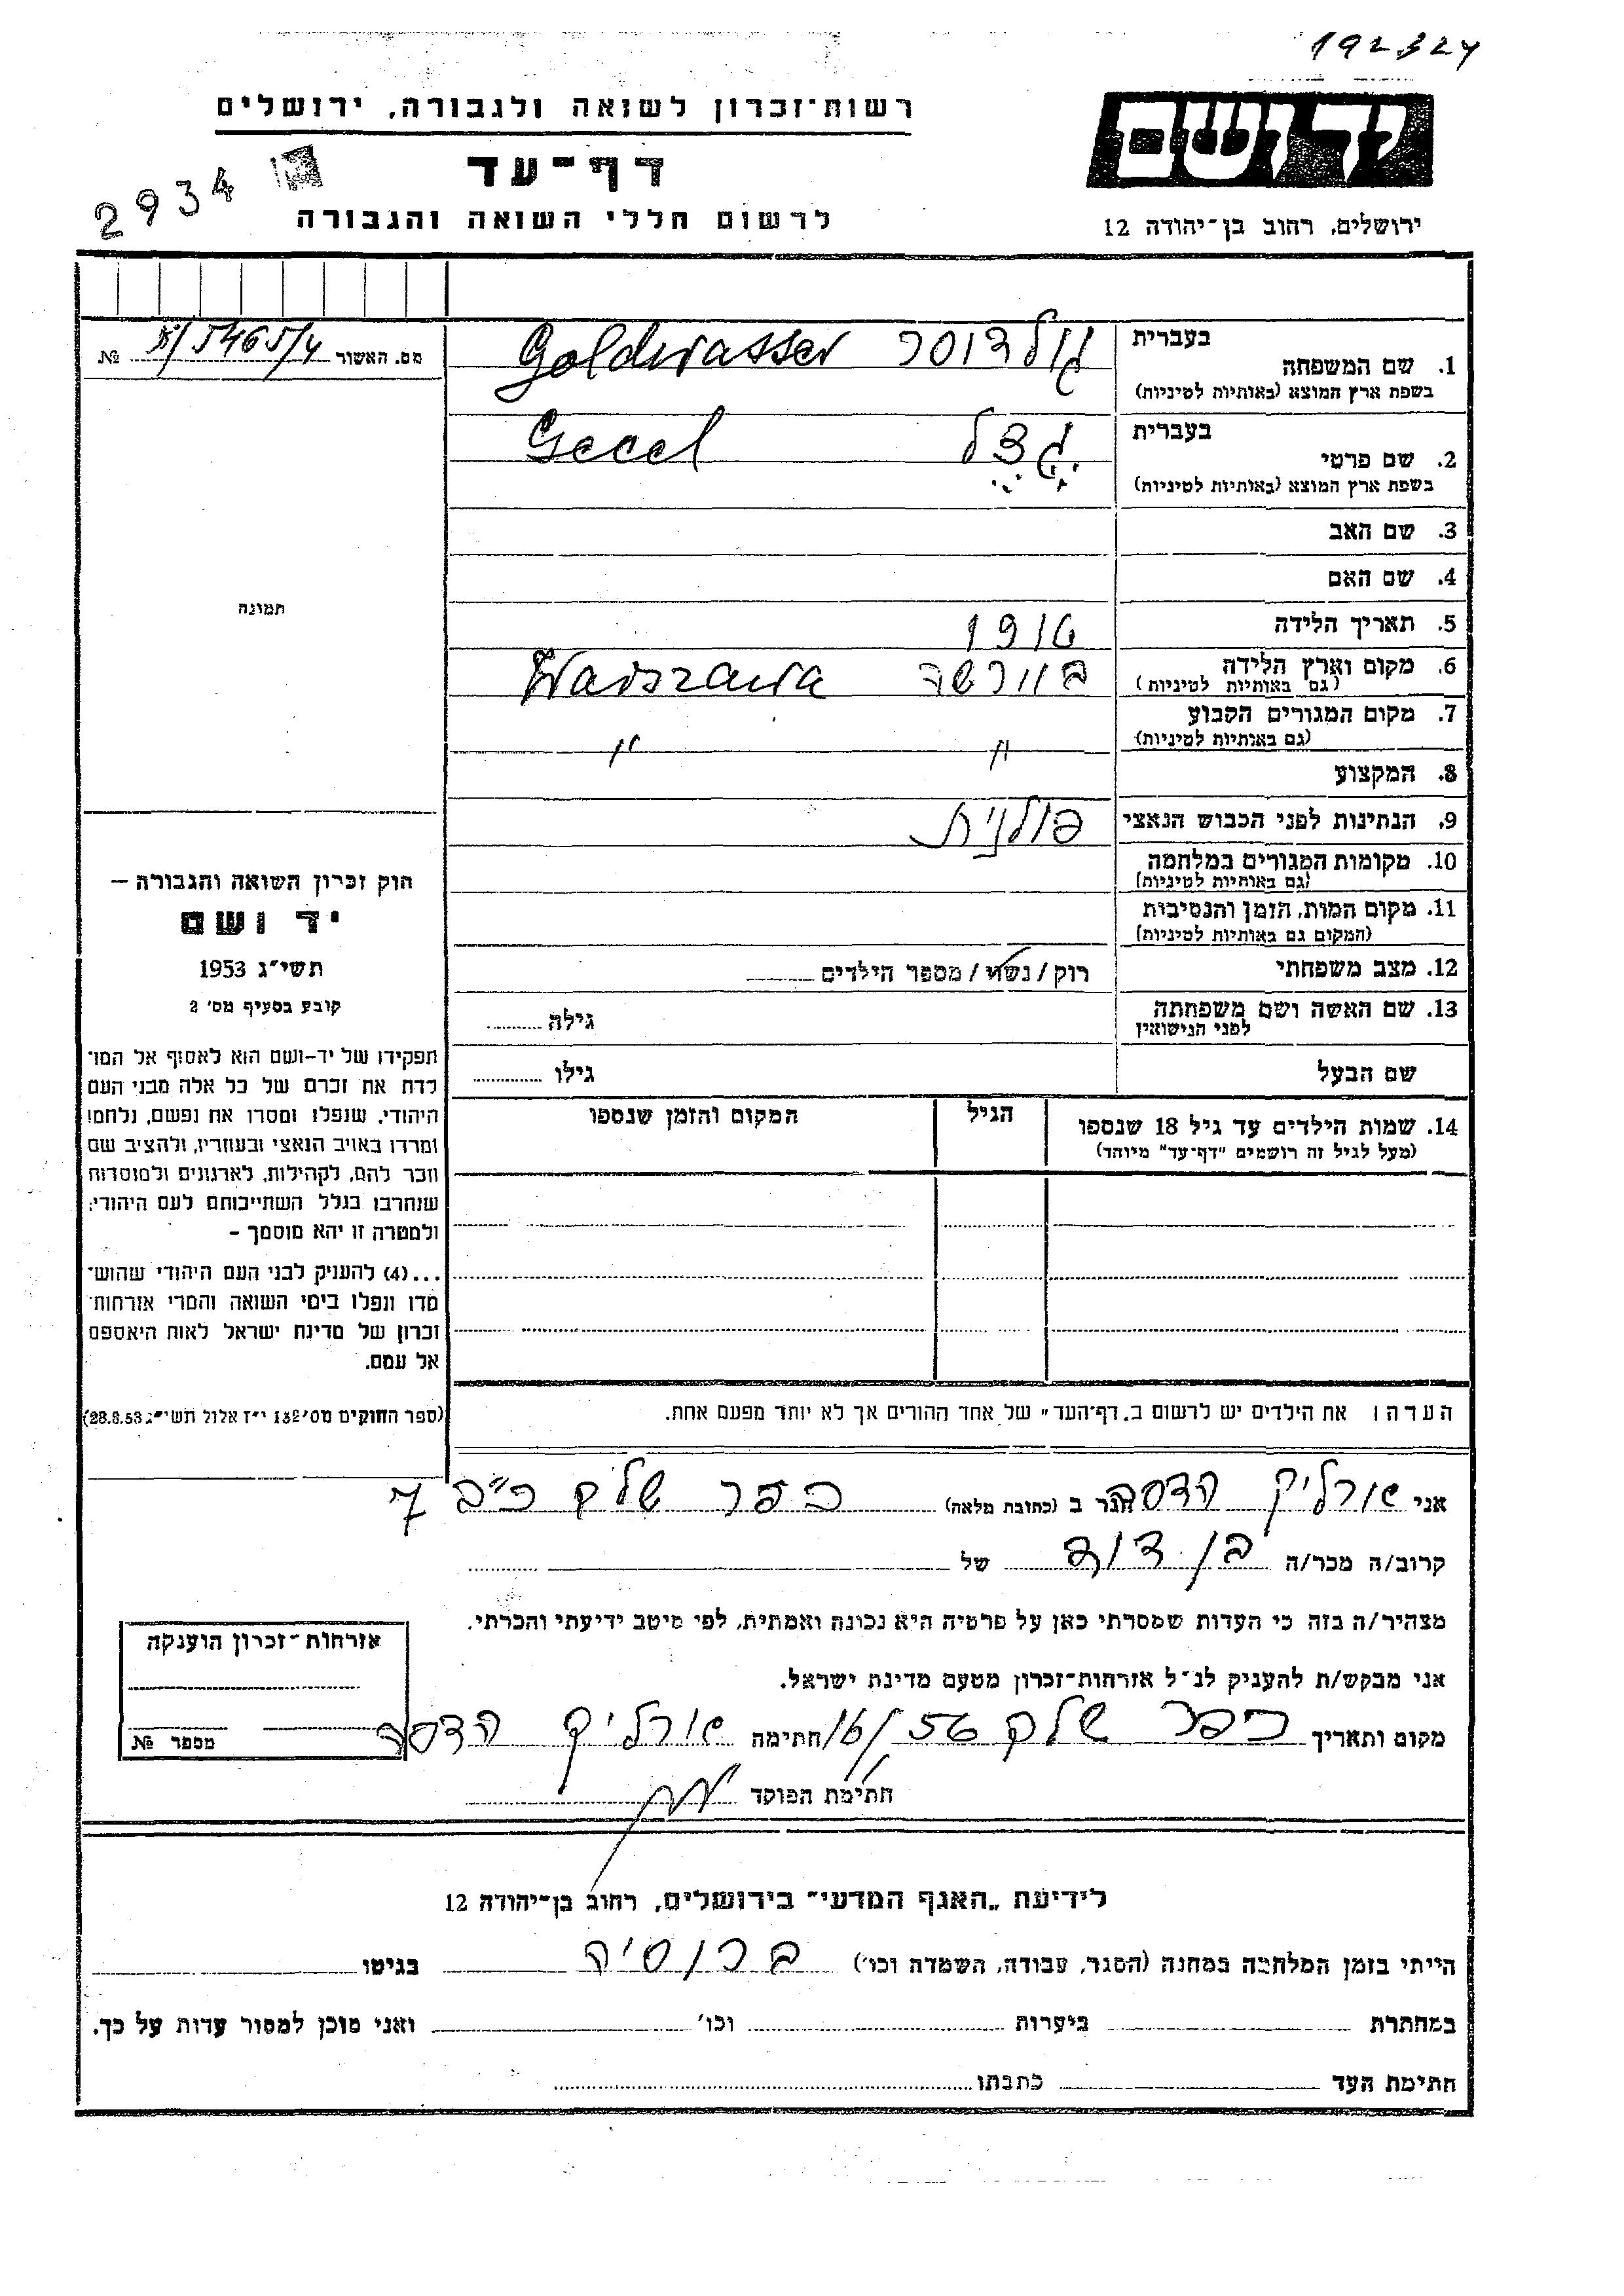 192324
רשות־זכרון לשואה ולגבורה, ירושלים
דף־עד
לרשום חללי השואה והגבורה
2934
יד ושם
ירושלים, רחוב בן־יהודה 12
מס. האשור №
1. שם המשפחה בעברית גולדוסר Goldwasser
בשפת ארץ המוצא (באותיות לטיניות)
2. שם פרטי בעברית גצל Gecel
בשפת ארץ המוצא (באותיות לטיניות)
3. שם האב
4. שם האם
5. תאריך הלידה 1916
6. מקום וארץ הלידה בוורשה Warszawa
(גם באותיות לטיניות)
7. מקום המגורים הקבוע " "
(גם באותיות לטיניות)
8. המקצוע
9. הנתינות לפני הכבוש הנאצי פולנית
10. מקומות המגורים במלחמה
(גם באותיות לטיניות)
11. מקום המות, הזמן והנסיבות
(המקום גם באותיות לטיניות)
12. מצב משפחתי רוק / נשוי / מספר הילדים
13. שם האשה ושם משפחתה לפני הנישואין גילה
שם הבעל גילו
14. שמות הילדים עד גיל 18 שנספו הגיל המקום והזמן שנספו
(מעל לגיל זה רושמים "דף־עד" מיוחד)
תמונה
חוק זכרון השואה והגבורה –
יד ושם
תשי"ג 1953
קובע בסעיף מס' 2
תפקידו של יד-ושם הוא לאסוף אל המו־
לדת את זכרם של כל אלה מבני העם
היהודי, שנפלו ומסרו את נפשם, נלחמו
ומרדו באויב הנאצי ובעוזריו, ולהציב שם
וזכר להם, לקהילות, לארגונים ולמוסדות
שנחרבו בגלל השתייכותם לעם היהודי;
ולמטרה זו יהא מוסמך –
...(4) להעניק לבני העם היהודי שהוש־
מדו ונפלו בימי השואה והמרי אזרחות־
זכרון של מדינת ישראל לאות היאספם
אל עמם.
(ספר החוקים מס' 132 י"ז אלול תשי"ג 28.8.53)
הערה: את הילדים יש לרשום ב"דף־העד" של אחד ההורים אך לא יותר מפעם אחת.
אני אורליק הדסה הגר ב (כתובת מלאה) כפר שלם
קרוב/ה מכר/ה בן דוד של
מצהיר/ה בזה כי העדות שמסרתי כאן על פרטיה היא נכונה ואמתית, לפי מיטב ידיעתי והכרתי.
אני מבקש/ת להעניק לנ"ל אזרחות־זכרון מטעם מדינת ישראל.
מקום ותאריך כפר שלם חתימה אורליק הדסה
חתימת הפוקד
אזרחות־זכרון הוענקה
מספר №
לידיעת "האגף המדעי" בירושלים, רחוב בן־יהודה 12
הייתי בזמן המלחמה במחנה (הסגר, עבודה, השמדה וכו') ברוסיה בגיטו
במחתרת ביערות וכו' ואני מוכן למסור עדות על כך.
חתימת העד כתבתו